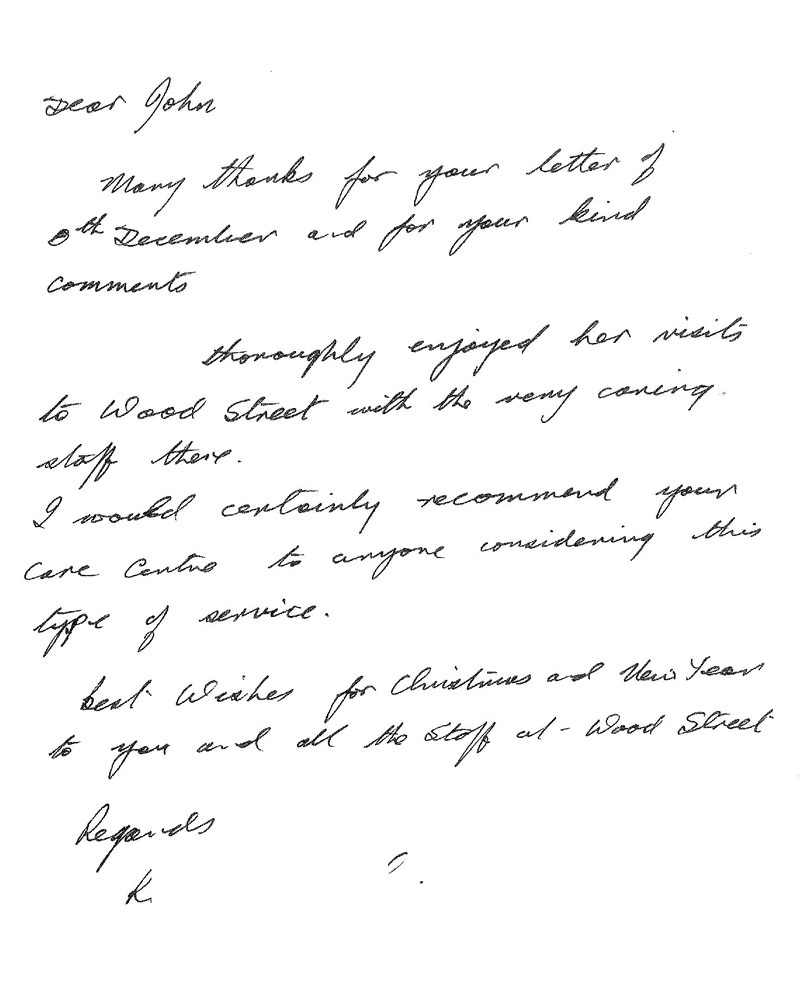 Dear John
Many thanks for your letter of
8th December and for your kind
comments
thoroughly enjoyed her visits
to Wood Street with the very caring
staff there.
I would certainly recommend your
Care Centre to anyone considering this
type of service.
best Wishes for Christmas and New Year
to you and all the Staff at - Wood Street
Regards
K